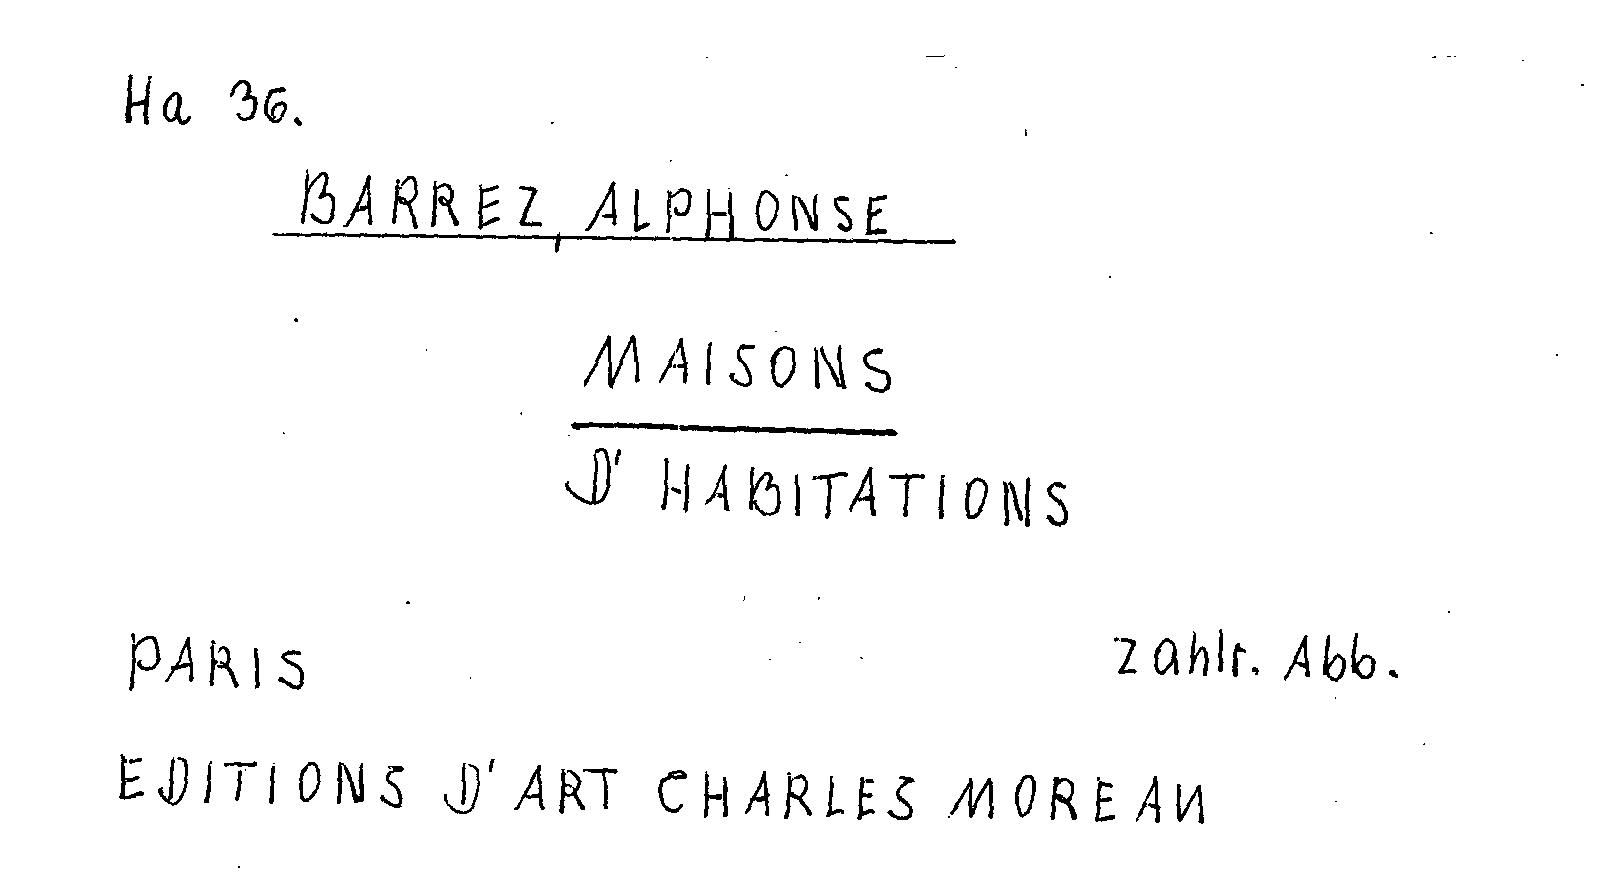 Ha 36.
BARREZ, ALPHONSE
MAISONS
D'HABITATIONS
PARIS zahlr. Abb.
EDITIONS D'ART CHARLES MOREAU